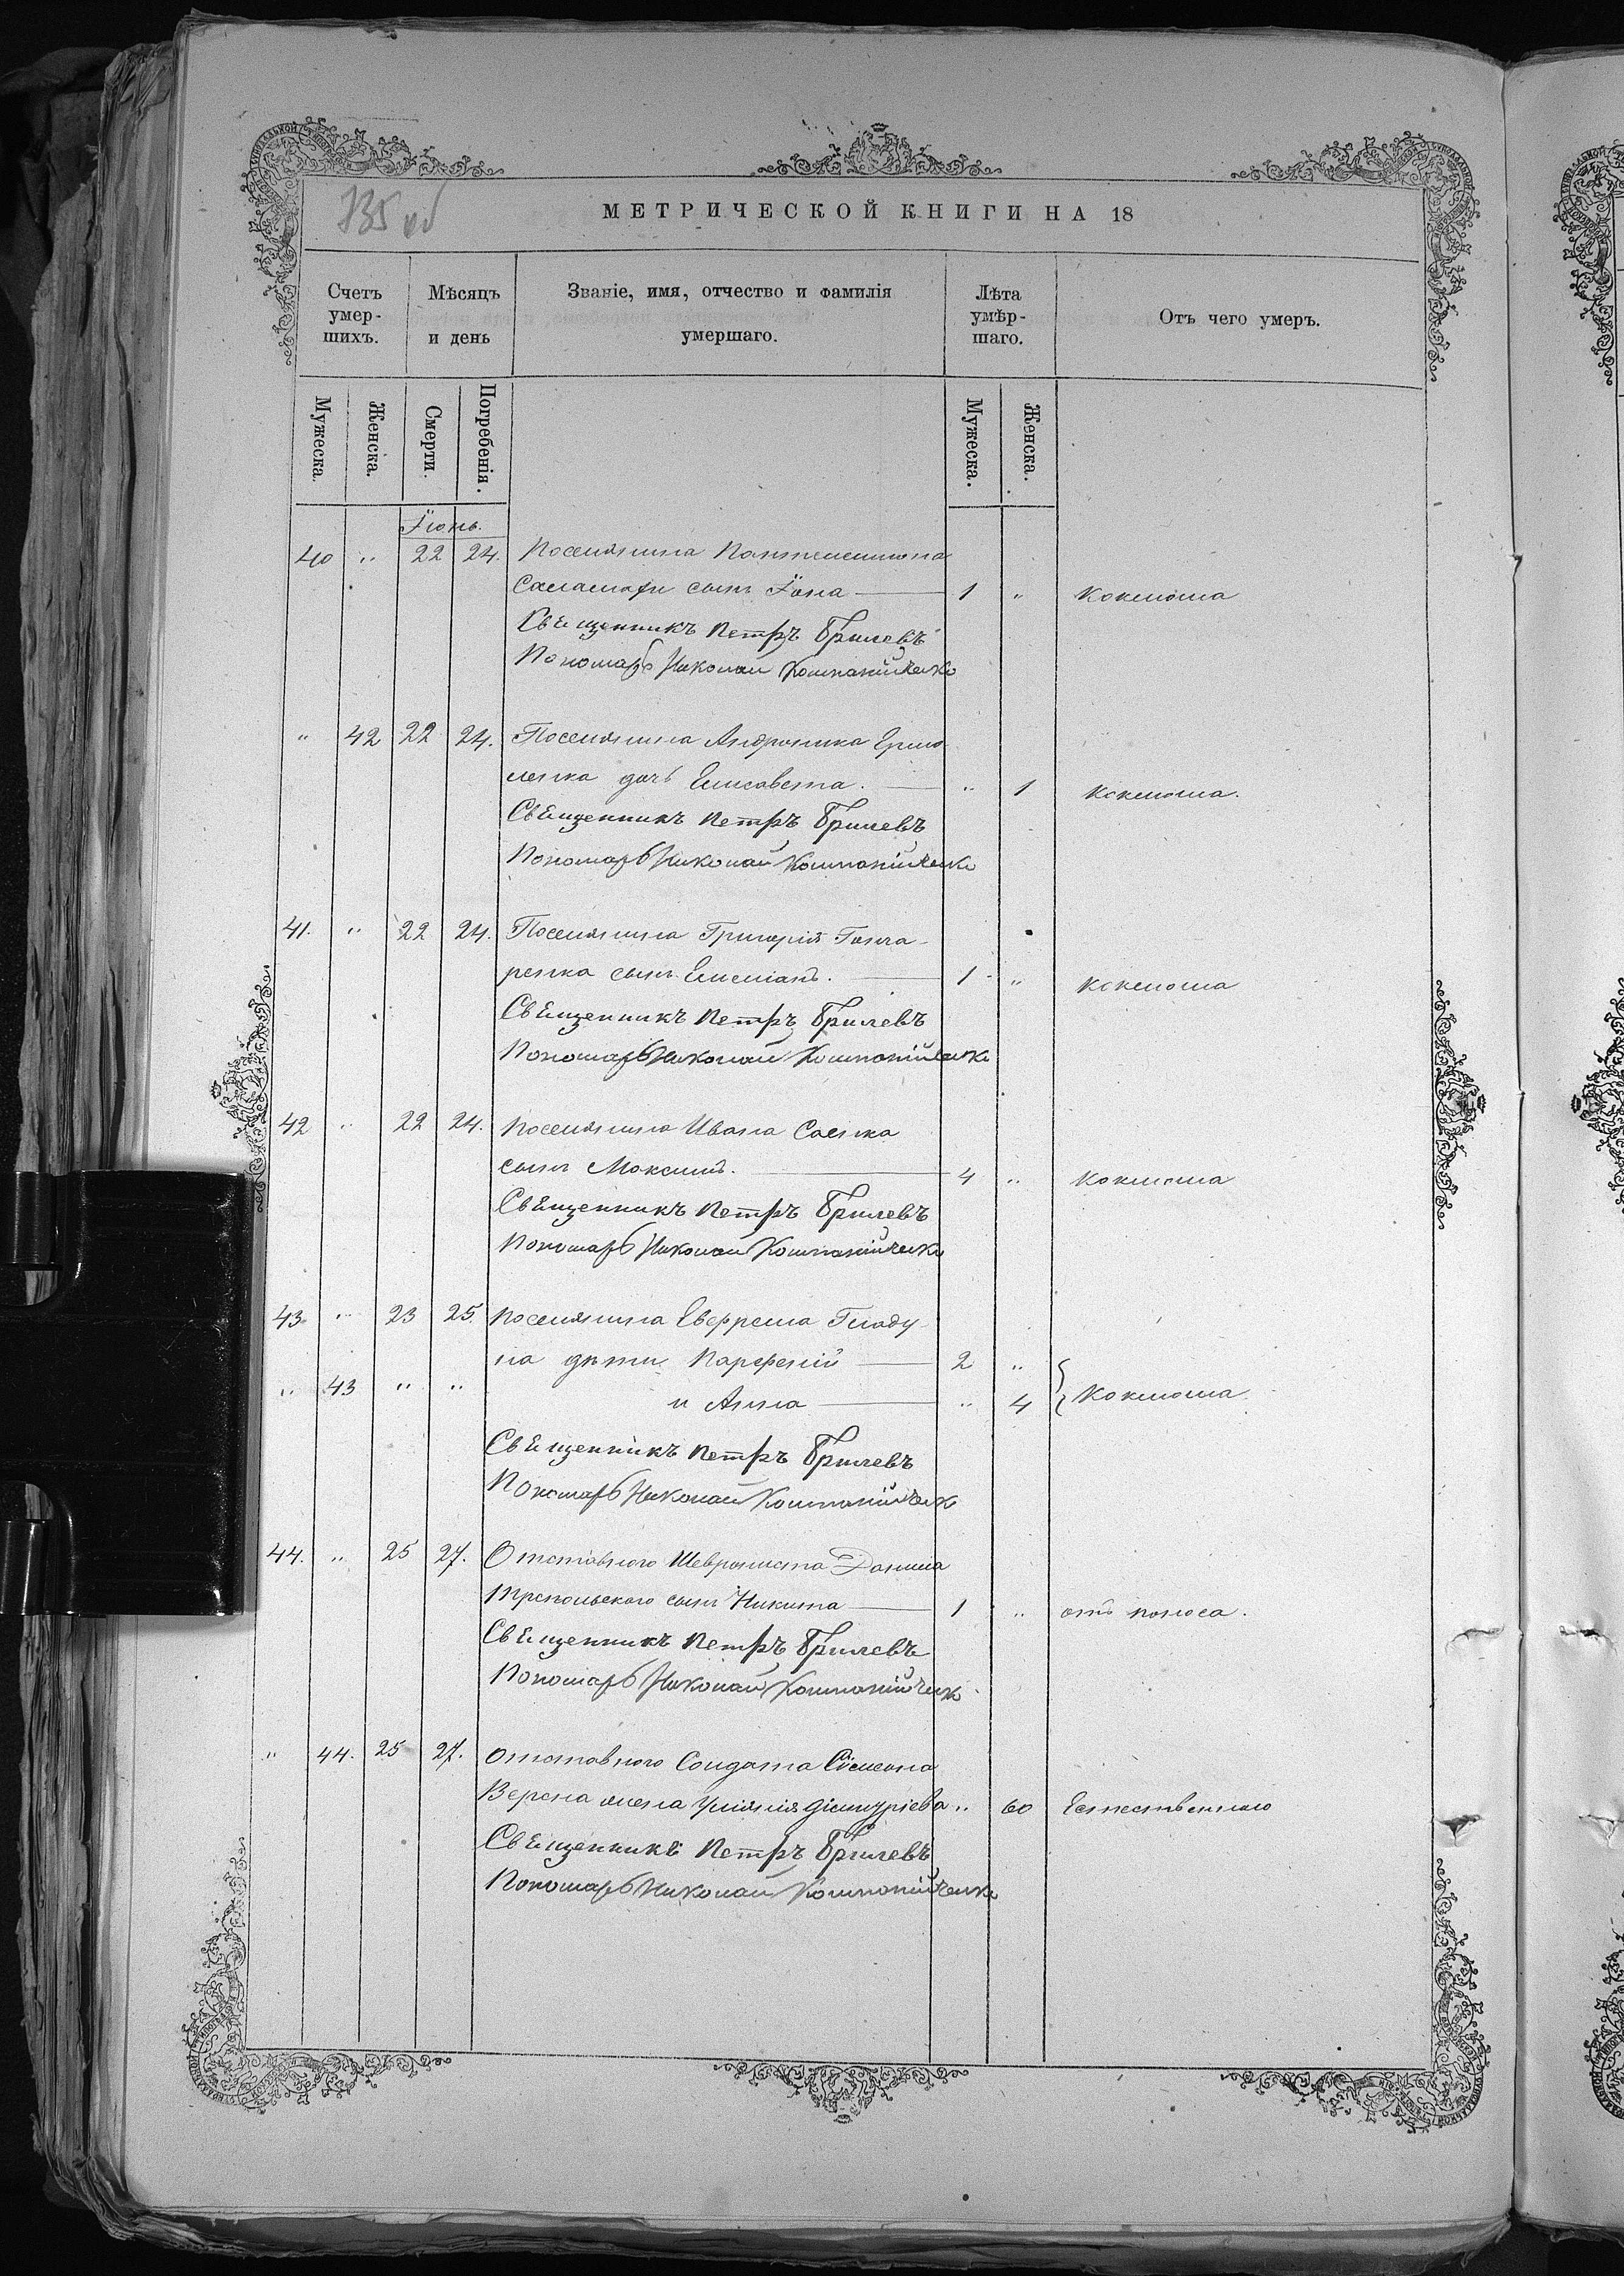 735 об
МЕТРИЧЕСКОЙ КНИГИ НА 18
Счетъ умер-шихъ.
Мѣсяцъ и день
Званіе, имя, отчество и фамилія умершаго.
Лѣта умѣр-шаго.
Отъ чего умеръ.
Мужеска.
Женска.
Смерти.
Погребенія.
Мужеска.
Женска.
Іюнь.
40 " 22 24. Поселянина Пантелеимона
сынъ Іона 1 " Коклюша
Священникъ Петръ Брилевъ
Пономарь Николай Компанійченко
" 42 22 24. Поселянина Андроника Ермо
ленка дочь Елисавета. " 1 Коклюша.
Священникъ Петръ Брилевъ
Пономарь Николай Компанійченко
41. " 22 24. Поселянина Григорія Гонча-
ренка сынъ Емеліанъ. 1 " Коклюша
Священникъ Петръ Брилевъ
Пономарь Николай Компанійченко
42 " 22 24. Поселянина Ивана Саенка
сынъ Максимъ. 4 " Коклюша
Священникъ Петръ Брилевъ
Пономарь Николай Компанійченко
43. " 23 25. Поселянина Евфрема Гладу
на дѣти Парфеній 2 "
" 43 " " и Анна " 4 Коклюша
Священникъ Петръ Брилевъ
Пономарь Николай Компанійченк
44. " 25 27. Отставного Шеврониста Данила
Трепольского сынъ Никита 1 " отъ поноса.
Священникъ Петръ Брилевъ
Пономарь Николай Компанійченк
" 44. 25 27. Отставного Солдата Сімеона
жена Димитріева " 60 Естественною
Священникъ Петръ Брилевъ
Пономарь Николай Компанійченко